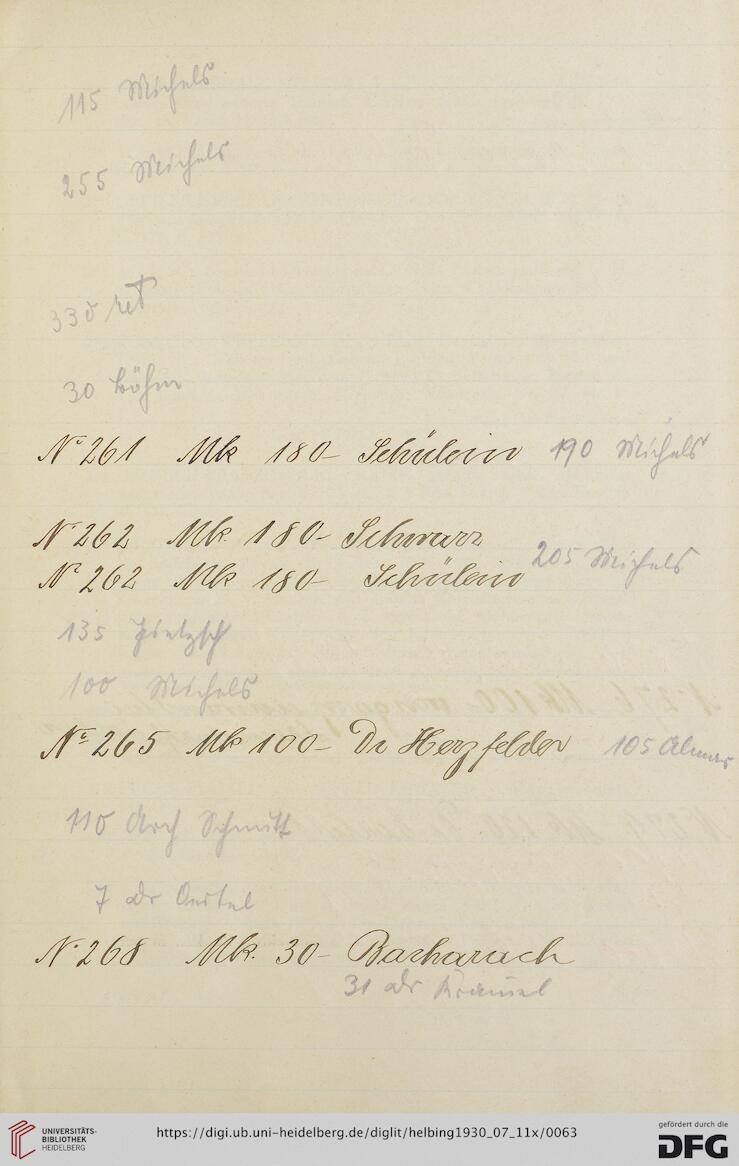 115 Michels
255 Michels
330 ret
30 Böhm
No 261 Mk 180- Schülein 190 Michels
No 262 Mk. 180- Schwarz
205 Michels
No 262 Mk 180- Schülein
135 Pietzsch
100 Michels
No 265 Mk 100- Dr Herzfelder 105
110 Arch Schmitt
7 Dr Oertel
No 268 Mk. 30- Bacharach
31 Dr
UNIVERSITÄTS-
BIBLIOTHEK
HEIDELBERG
https://digi.ub.uni-heidelberg.de/diglit/helbing1930_07_11x/0063
gefördert durch die
DFG